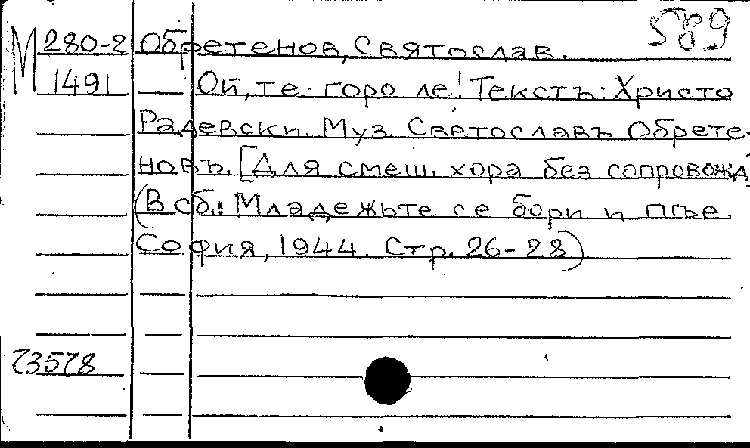 589
М 280-2 Обретенов, Святослав.
1491 Ой, те горо ле! Текстъ: Христо
Радевски. Муз. Светославъ Обрете-
новъ. [Для смеш. хора без сопровожд
(В сб.: Младежьте се бори и пѣе.
София, 1944. Стр. 26-28)
73578